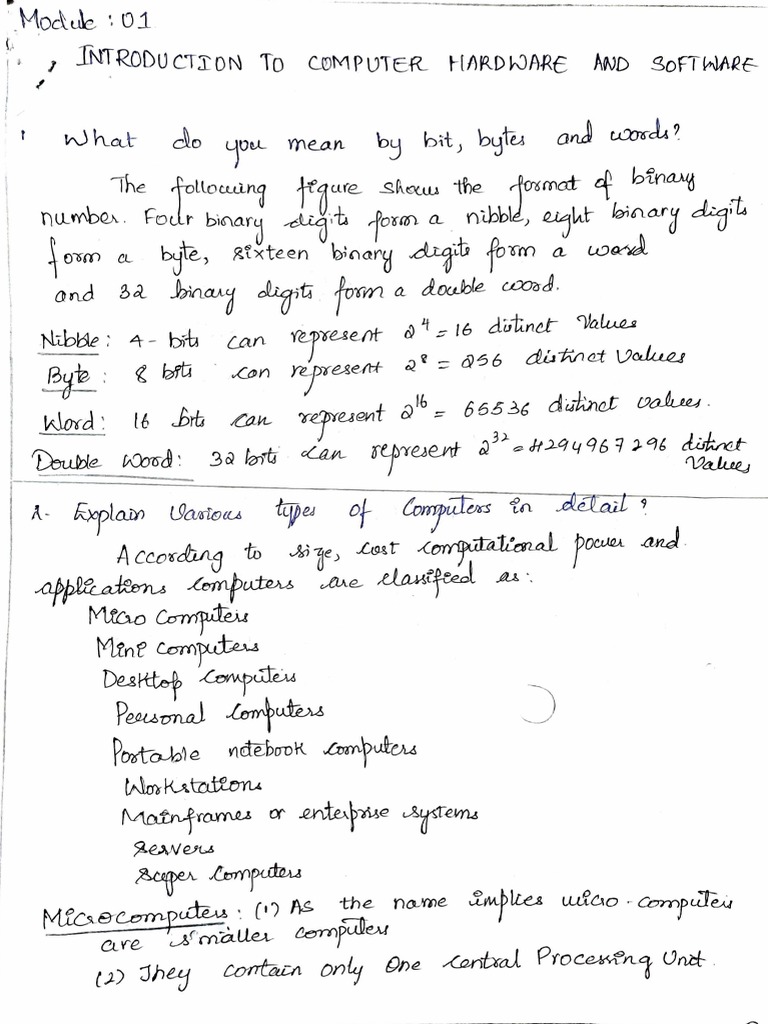 Module : 01
INTRODUCTION TO COMPUTER HARDWARE AND SOFTWARE
1 What do you mean by bit, bytes and words?
The following figure shows the format of binary
number. Four binary digits form a nibble, eight binary digits
form a byte, sixteen binary digits form a word
and 32 binary digits form a double word.
Nibble : 4 - bits can represent 2⁴ = 16 distinct Values
Byte : 8 bits can represent 2⁸ = 256 distinct Values
Word : 16 bits can represent 2¹⁶ = 65536 distinct values.
Double Word : 32 bits can represent 2³² = 4294967296 distinct
Values
2- Explain Various types of Computers in detail ?
According to size, cost computational power and
applications computers are classified as :
Micro Computers
Mini Computers
Desktop Computers
Personal Computers
Portable notebook computers
Workstations
Mainframes or enterprise systems
Servers
Super Computers
Microcomputers : (1) As the name implies micro - computers
are smaller computers
(2) They contain only One Central Processing Unit.